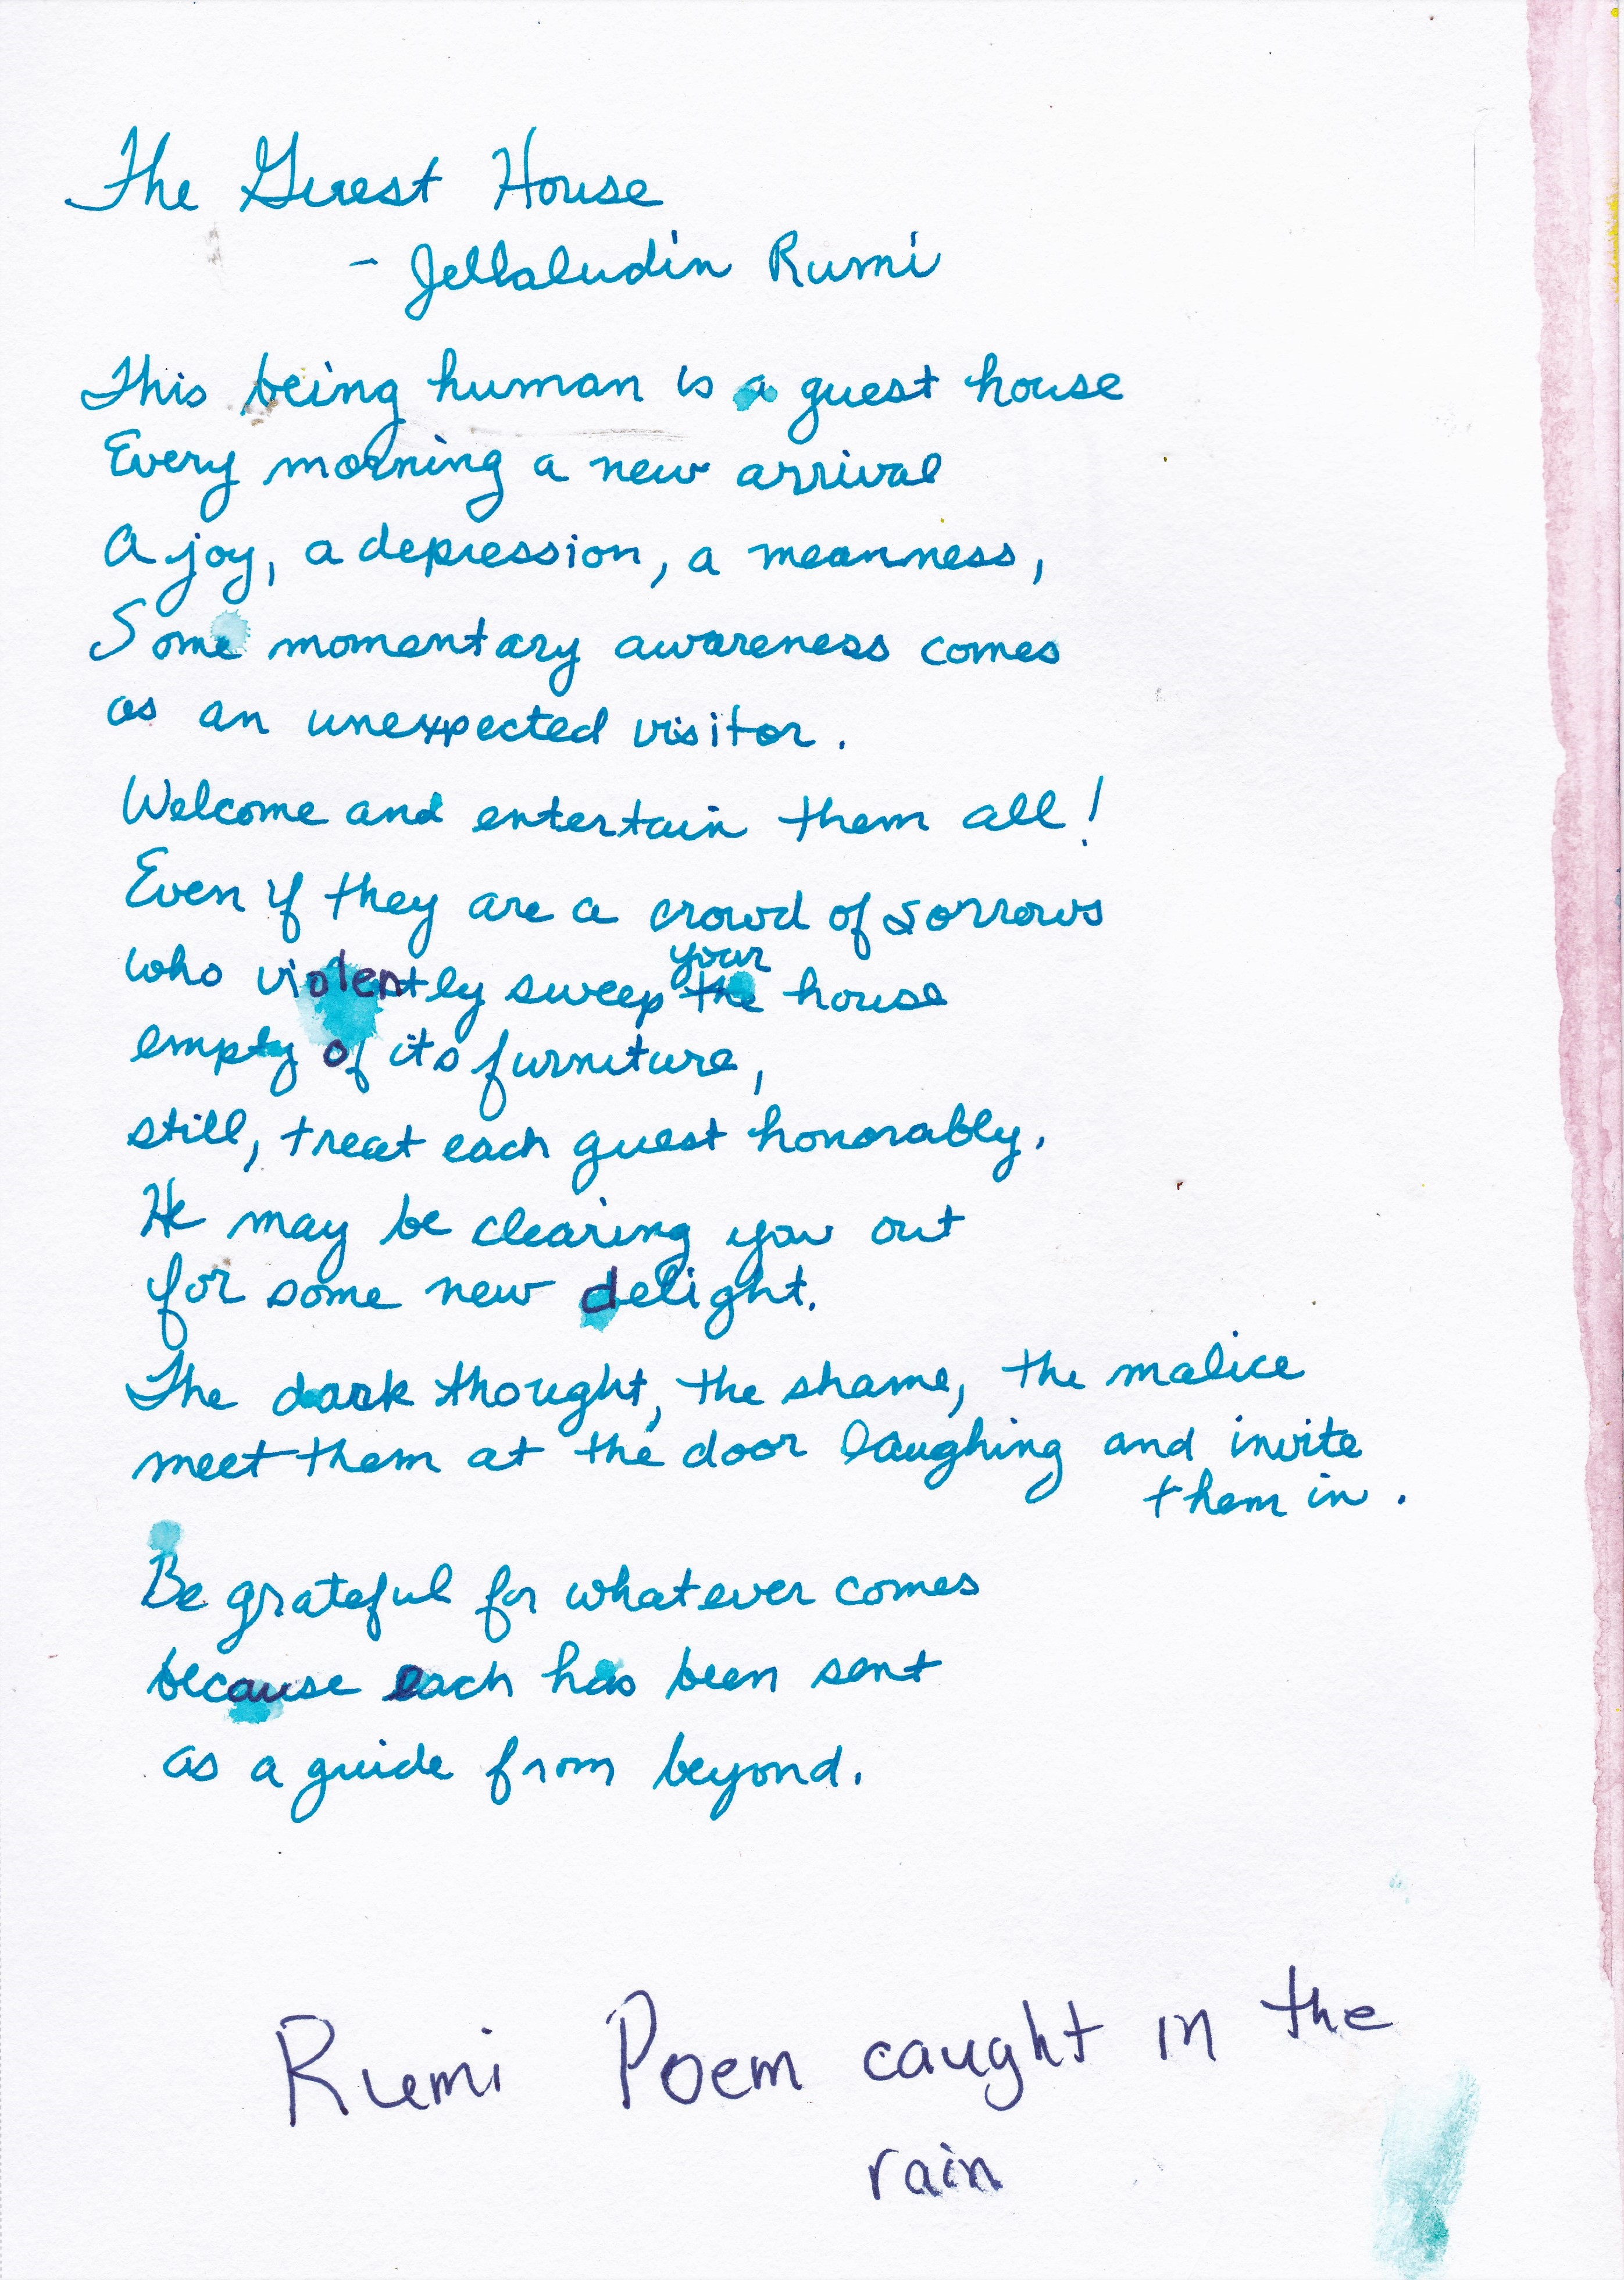 The Guest House
- Jellaludin Rumi
This being human is a guest house
Every morning a new arrival
A joy, a depression, a meanness,
Some momentary awareness comes
as an unexpected visitor.
Welcome and entertain them all!
Even if they are a crowd of sorrows
your
who violently sweep the house
empty of its furniture,
still, treat each guest honorably.
He may be clearing you out
for some new delight.
The dark thought, the shame, the malice
meet them at the door laughing and invite
them in.
Be grateful for whatever comes
because each has been sent
as a guide from beyond.
Rumi Poem caught in the
rain